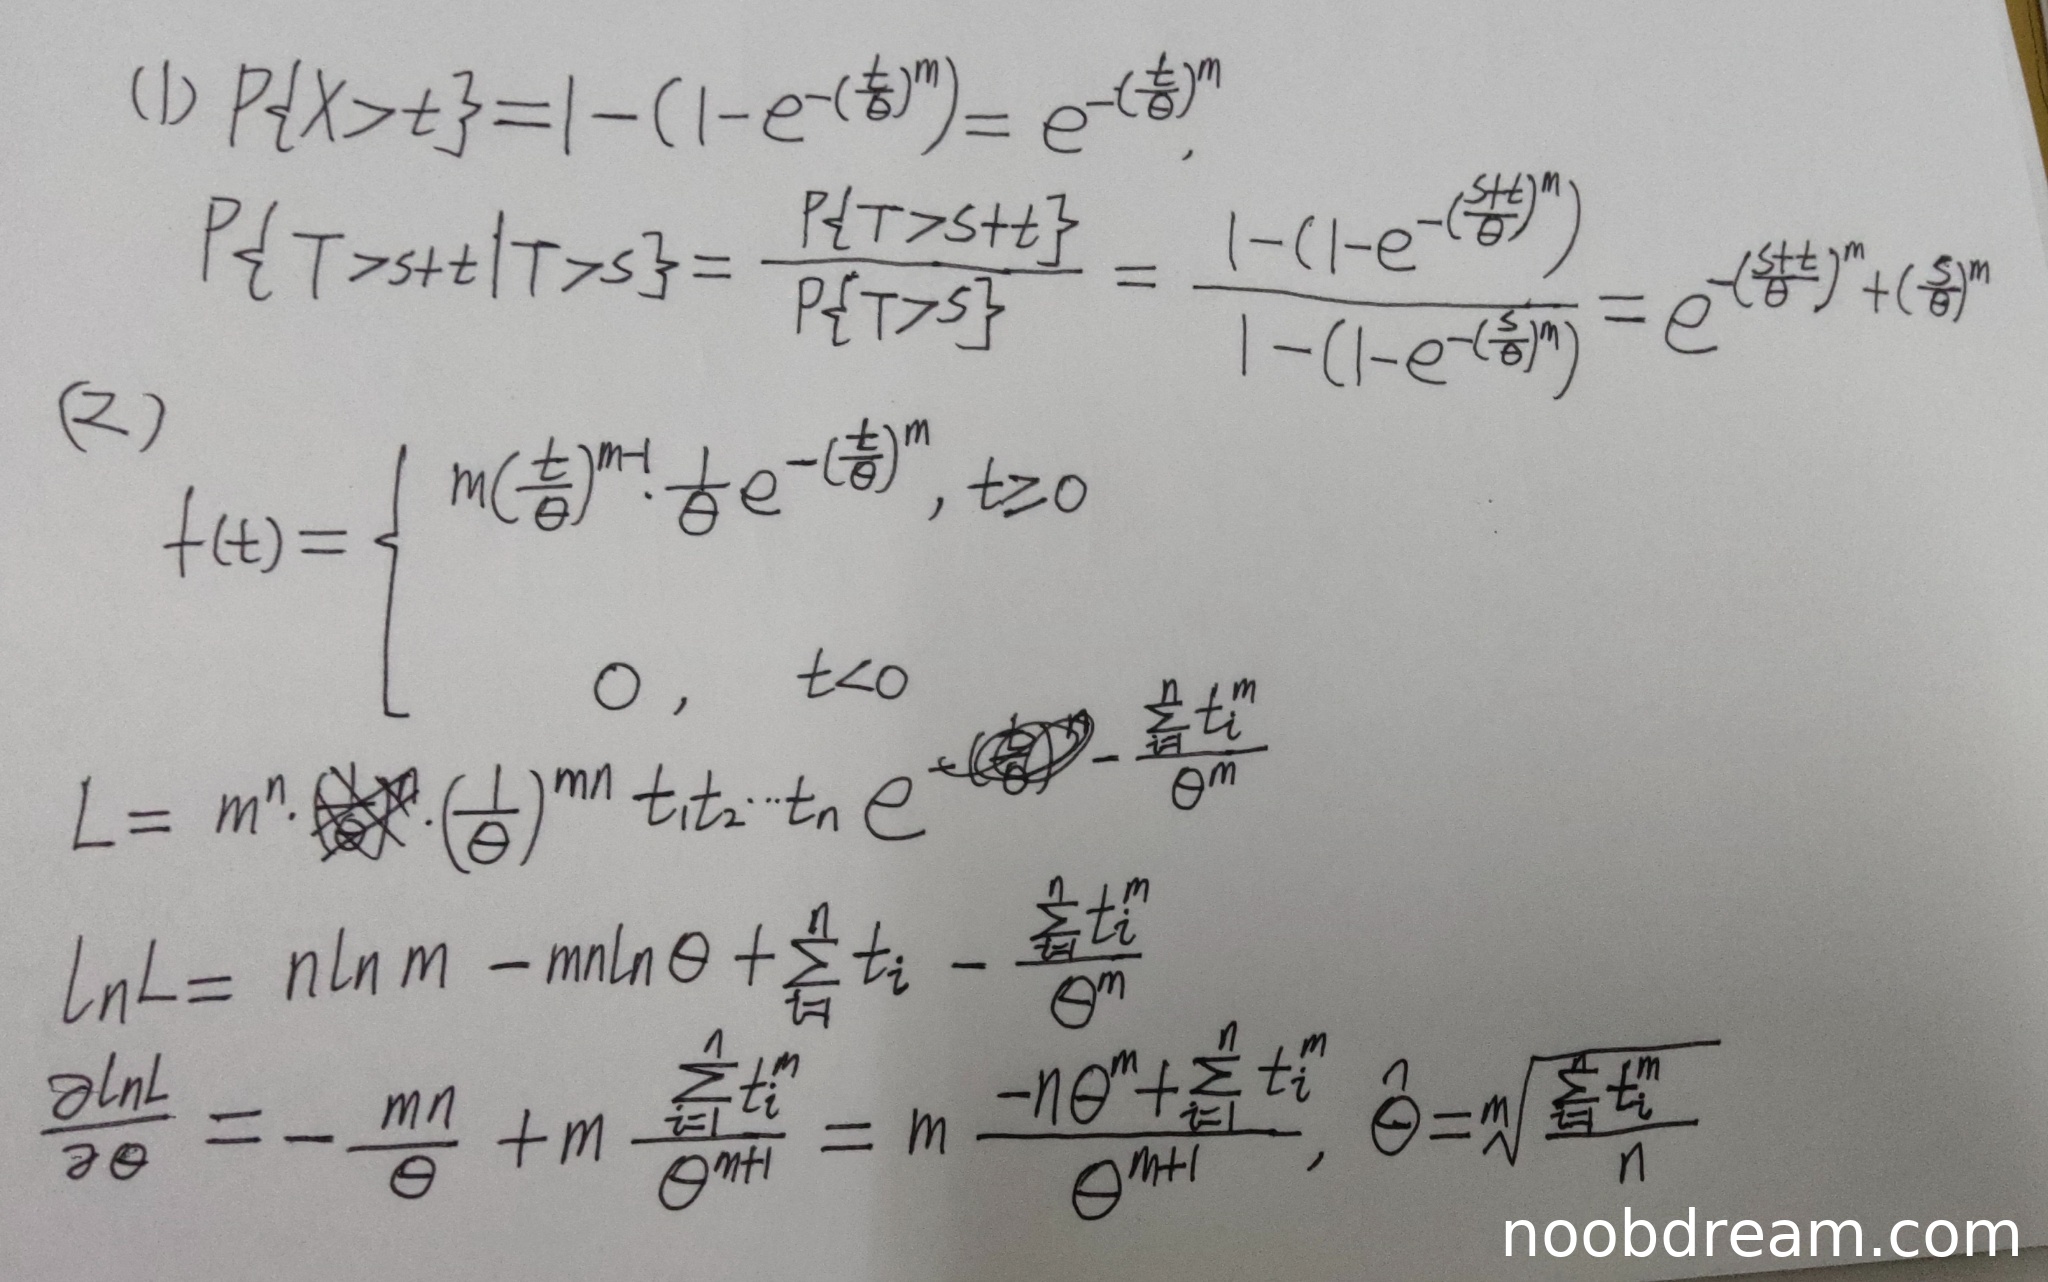 (1) P{X>t}=1-(1-e^{-(\frac{t}{θ})^m})=e^{-(\frac{t}{θ})^m},
P{T>s+t|T>s}=\frac{P{T>s+t}}{P{T>s}}=\frac{1-(1-e^{-(\frac{s+t}{θ})^m})}{1-(1-e^{-(\frac{s}{θ})^m})}=e^{-(\frac{s+t}{θ})^m+(\frac{s}{θ})^m}
(2)
f(t)={ m(\frac{t}{θ})^{m-1}·\frac{1}{θ}e^{-(\frac{t}{θ})^m}, t≥0
0, t<0
L=m^n··(\frac{1}{θ})^{mn} t_1t_2···t_n e^{-\frac{\sum_{i=1}^{n}t_i^m}{θ^m}}
lnL=nlnm-mnlnθ+\sum_{t=1}^{n}t_i-\frac{\sum_{t=1}^{n}t_i^m}{θ^m}
\frac{∂lnL}{∂θ}=-\frac{mn}{θ}+m\frac{\sum_{i=1}^{n}t_i^m}{θ^{m+1}}=m\frac{-nθ^m+\sum_{i=1}^{n}t_i^m}{θ^{m+1}}, \hat{θ}=\sqrt[m]{\frac{\sum_{i=1}^{n}t_i^m}{n}}
noobdream.com